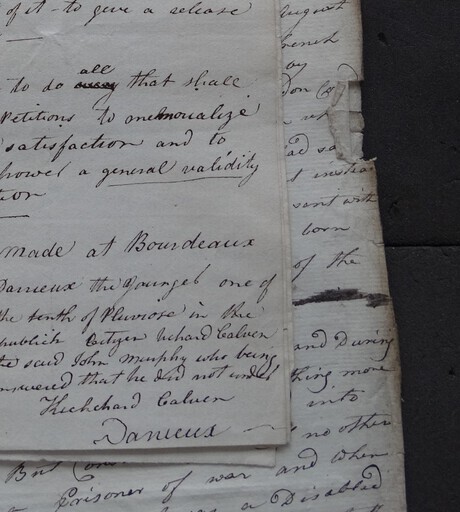 of it - to give a release
to do all that shall
Petitions to
satisfaction and to
a general validity
tion
made at Bourdeaux
Darrieux the Youngest one of
the tenth of Pluviose in the
publick Citizen Richard Calven
the said John Murphy who being
answered that he did not
Richchard Calven
Darrieux
August
french
by
born
of the
and During
thing more
into
no other
But
Prisoner of war and when
a Disabled